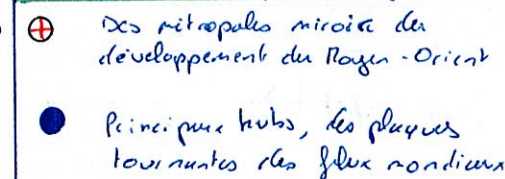 Des métropoles miroir du
développement du Moyen-Orient
Principaux hubs, des plaques
tournantes des flux mondiaux